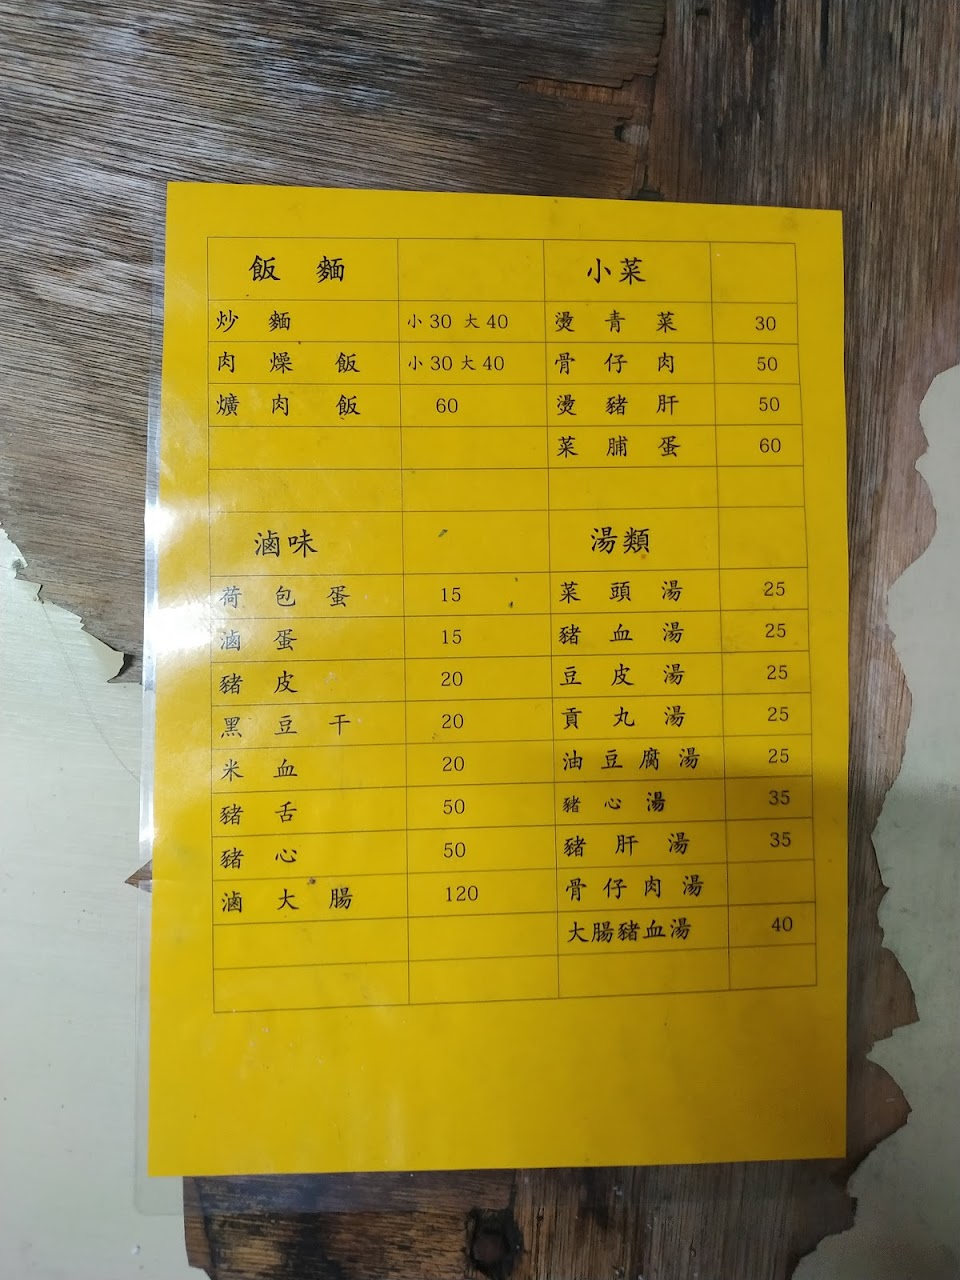 飯 麵 小菜
炒 麵 小 30 大 40 燙 青 菜 30
肉 燥 飯 小 30 大 40 骨 仔 肉 50
爌 肉 飯 60 燙 豬 肝 50
菜 脯 蛋 60
滷味 湯類
荷 包 蛋 15 菜 頭 湯 25
滷 蛋 15 豬 血 湯 25
豬 皮 20 豆 皮 湯 25
黑 豆 干 20 貢 丸 湯 25
米 血 20 油 豆 腐 湯 25
豬 舌 50 豬 心 湯 35
豬 心 50 豬 肝 湯 35
滷 大 腸 120 骨 仔 肉 湯
大腸豬血湯 40